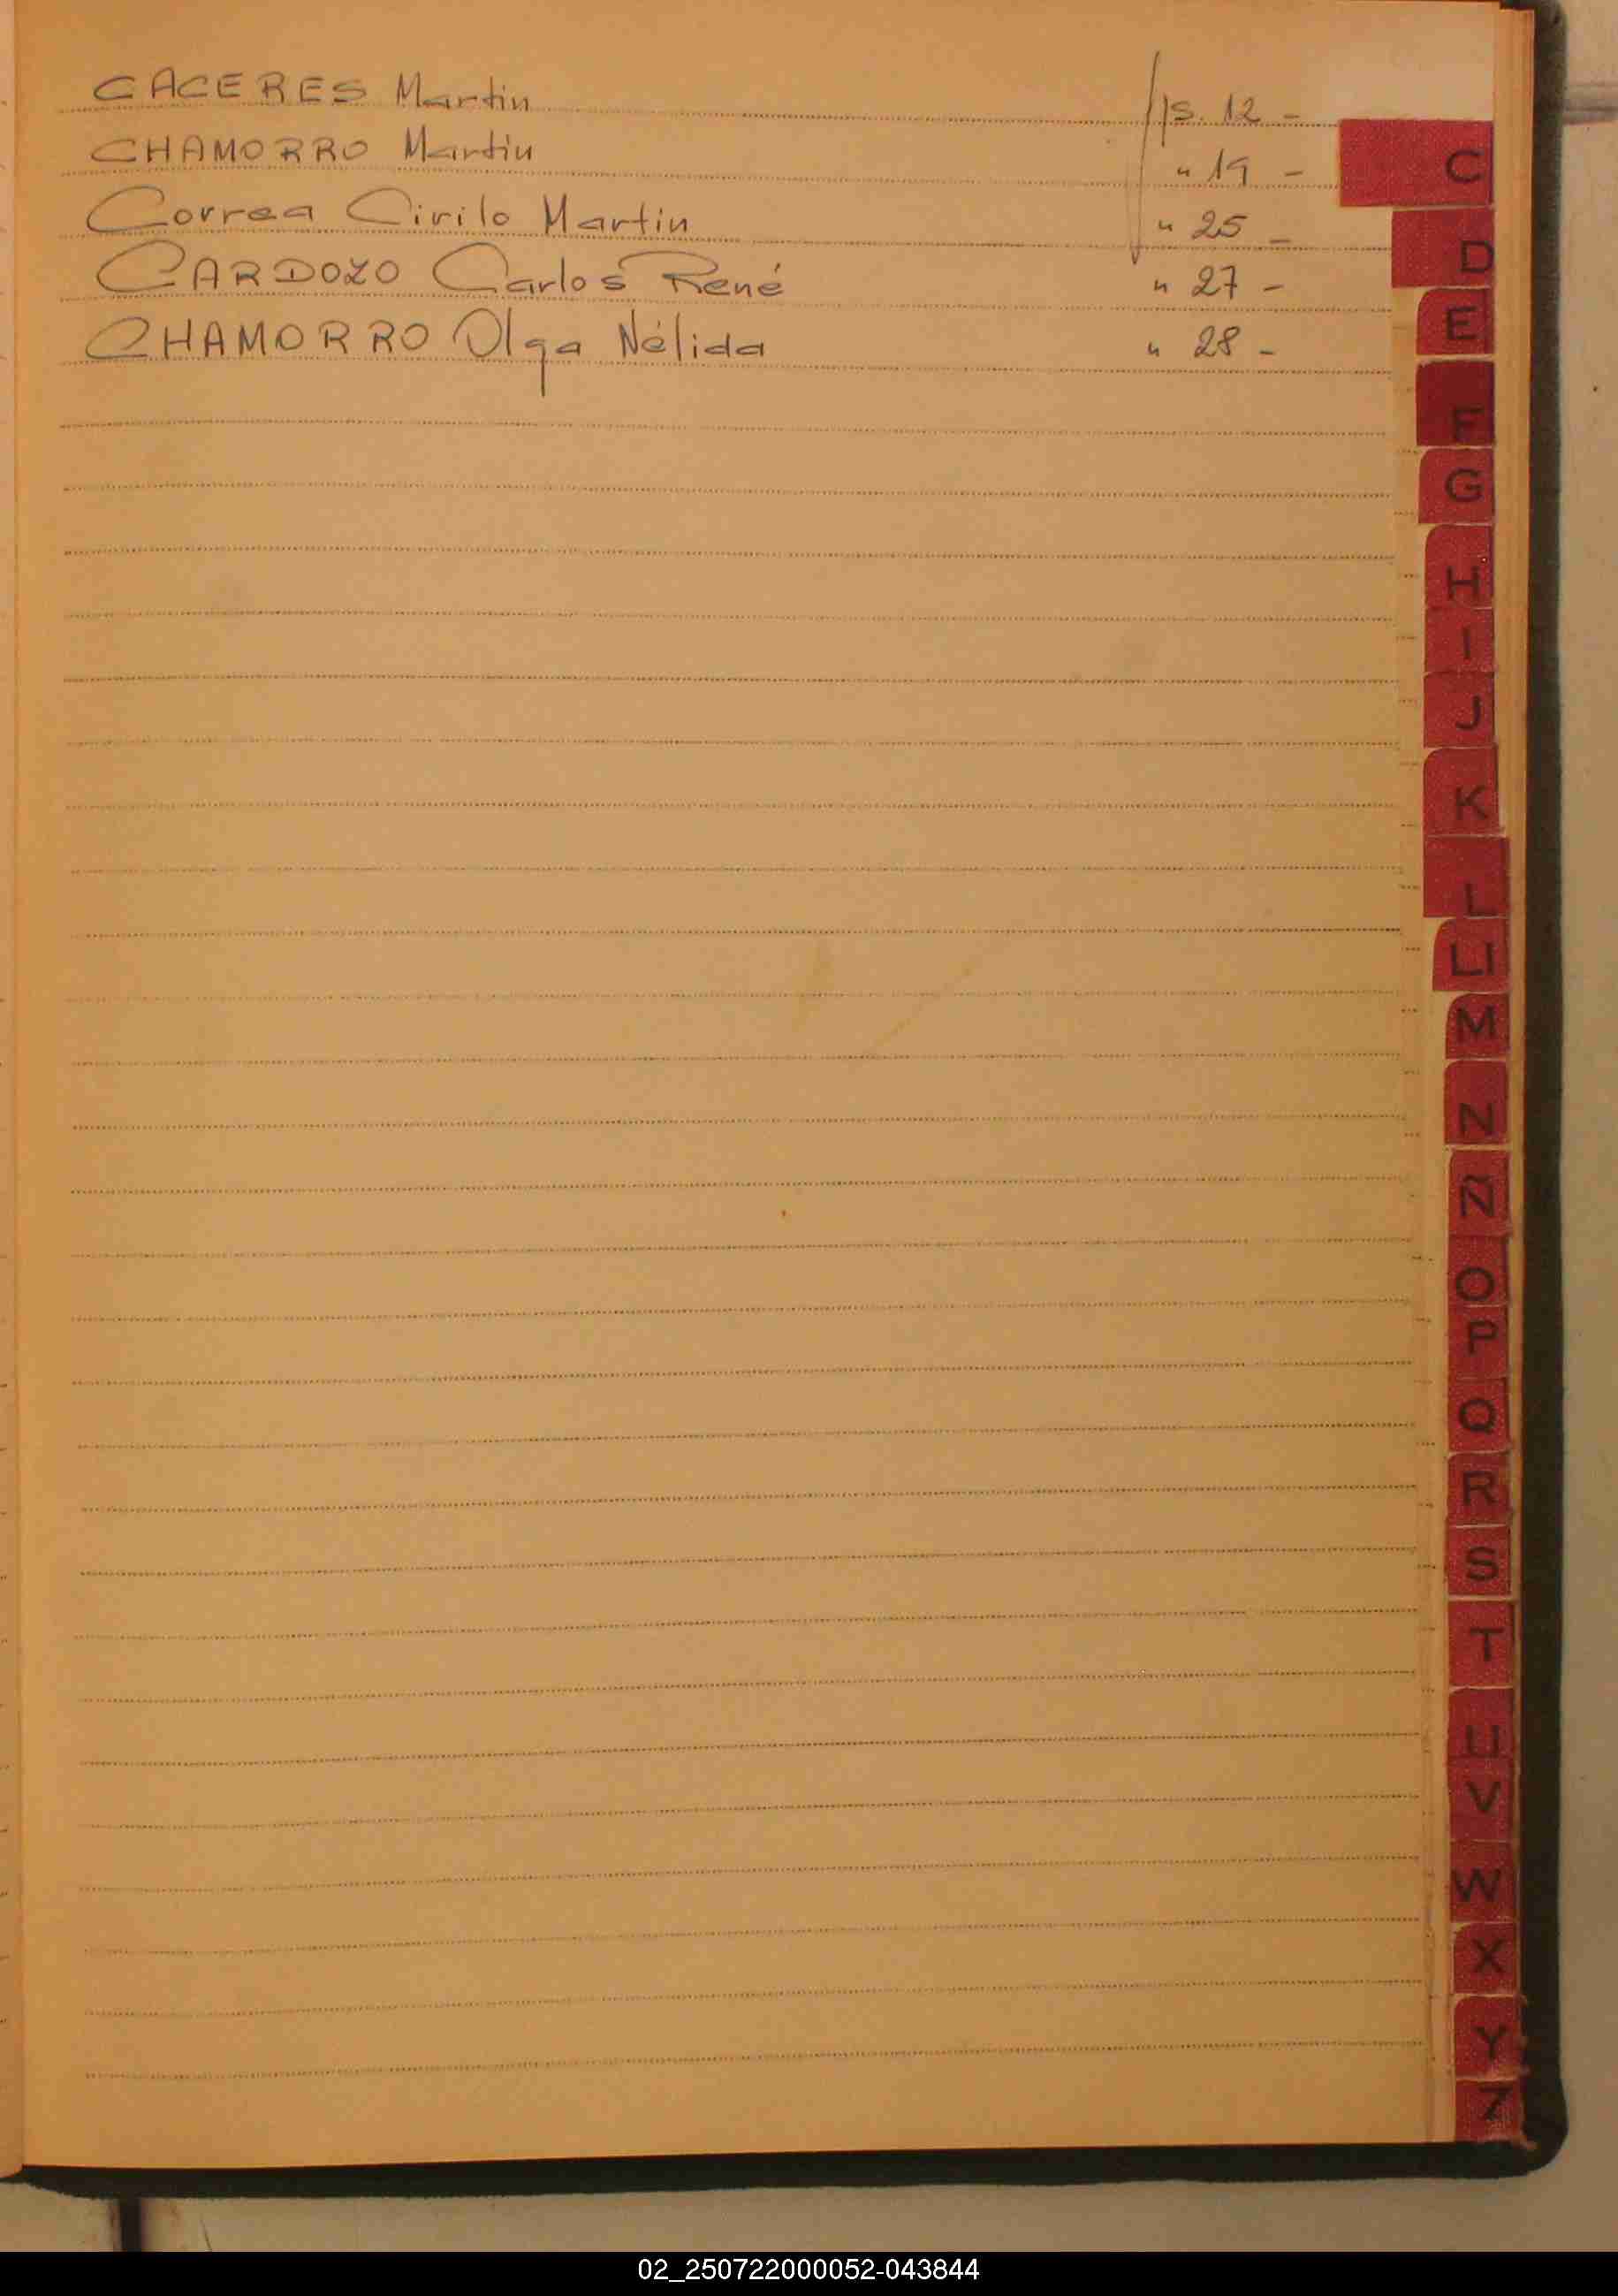 CACERES Martin fs. 12 -
CHAMORRO Martin " 19 -
Correa Cirilo Martin " 25 -
CARDOZO Carlos René " 27 -
CHAMORRO Olga Nélida " 28 -
C
D
E
F
G
H
I
J
K
L
Ll
M
N
Ñ
O
P
Q
R
S
T
U
V
W
X
Y
Z
02_250722000052-043844